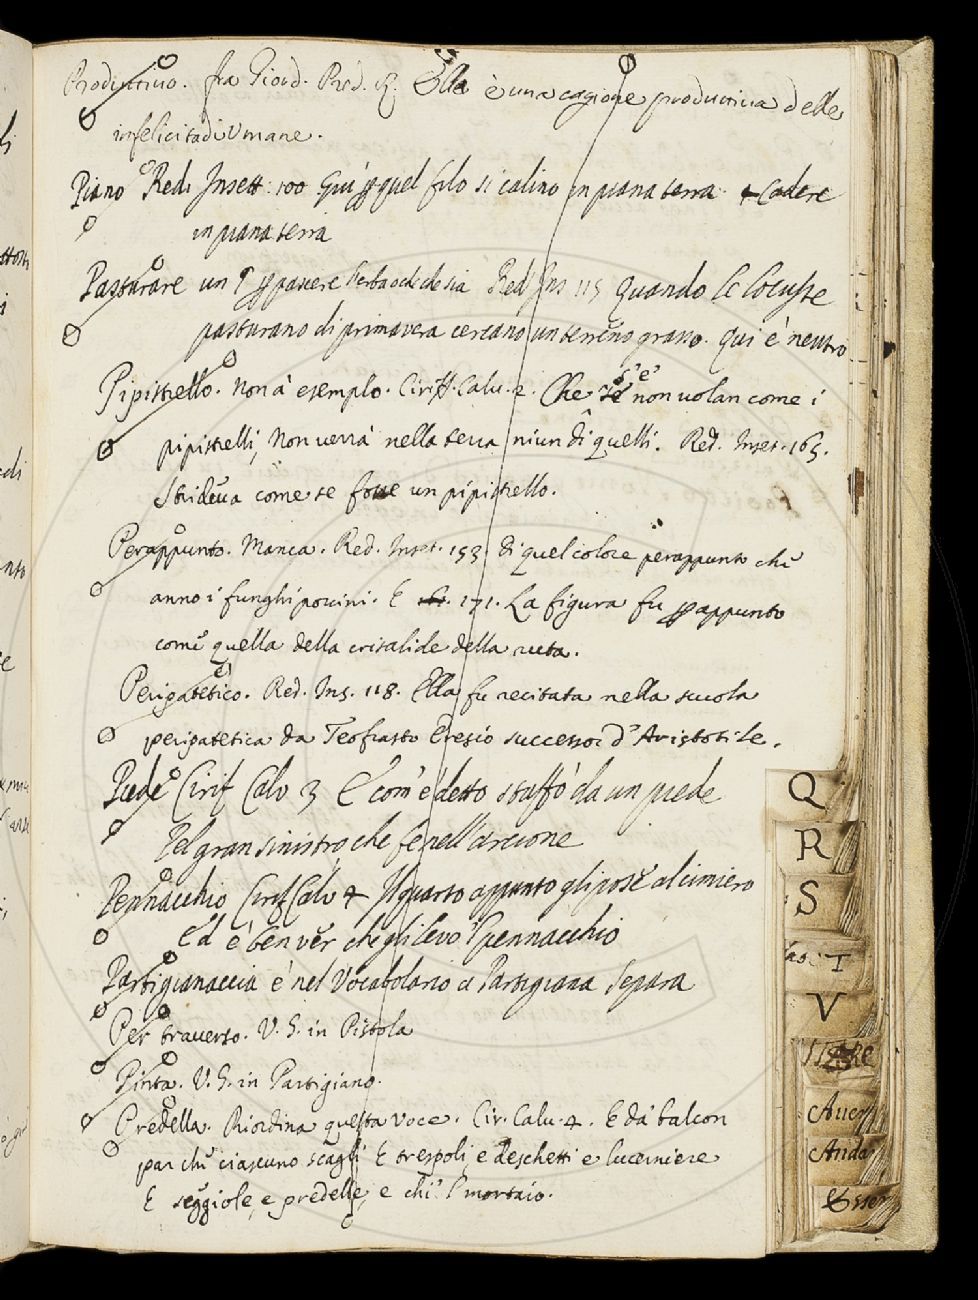 Produttivo. fra Giord. Pred. R. Ella è una cagione produttiva delle
infelicitadi Umane.
Piano Redi Insett: 100 Qui ꝑ quel filo si calino in piana terra + Cadere
in piana terra
Pasturare un ꝑ pascere l'erba ode chesia Red Ins 115 Quando le locuste
pasturano di primavera cercano un terreno grasso. Qui è neutro
Pipistrello. Non à esemplo. Ciriff. Calv. 2. Che se s'è non uolan come i
pipistrelli, Non uerrà nella terra niun di quelli. Red. Inset. 165.
Strideua come se fosse un pipistrello.
Perappunto. Manca. Red. Inset. 153. di quel colore perappunto che
anno i funghi porcini. E 171. La figura fu ꝑappunto
come quella della crisalide della ruta.
Peripatetico. Red. Ins. 118. Ella fu recitata nella scuola
peripatetica da Teofrasto Eresio successor d'Aristotile.
Piede Cirif Calv 3 E com'è detto staffò da un piede
Pel gran sinistro che fe nell'arcione
Pennacchio Cirif Calv 4 Il quarto appunto gli pose al cimiero
Ed è ben ver che gli levò 'l pennacchio
Partigianaccia è nel Vocabolario a Partigiana Separa
Per traverso. V. S. in Pistola
Pinta. V. S. in Partigiano.
Predella. Riordina questa voce. Cir. Calu. 4. E dà balcon
par che ciascuno scagli E trespoli, e deschetti e lucerniere
E seggiole, e predelle, e chi 'l mortaio.
Q
R
S
T
V
Auer
Anda
Esser